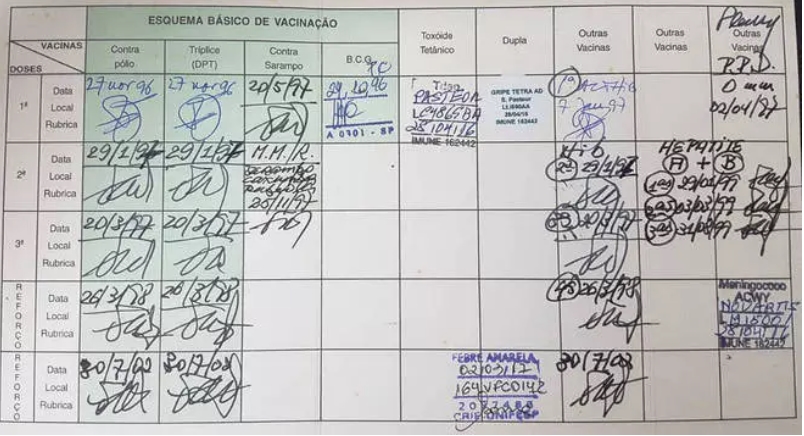 ESQUEMA BÁSICO DE VACINAÇÃO
VACINAS
DOSES
Contra pólio
Tríplice (DPT)
Contra Sarampo
B.C.G.
Toxóide Tetânico
Dupla
Outras Vacinas
Outras Vacinas
Outras Vacinas
P.P.D.
1ª
Data
Local
Rubrica
27 nov 96
27 nov 96
20/5/97
29,10,96
A 0701 - SP
PASTEUR
28/04/16
IMUNE 162442
GRIPE TETRA AD
S. Pasteur
28/04/16
IMUNE 162442
1ª
7 Jan 97
0 mm
02/04/97
2ª
Data
Local
Rubrica
29/1/97
29/1/97
M.M.R.
sarampo
25/11/97
Hib
2ª 29/1/97
HEPATITE
A + B
1ª 29/01/99
2ª 03/03/99
3ª 31/08/99
3ª
Data
Local
Rubrica
20/3/97
20/3/97
3ª 20/3/97
REFORÇO
Data
Local
Rubrica
26/3/98
26/3/98
4ª 26/3/98
Meningococo
ACWY
NOVARTIS
28/04/16
IMUNE 162442
REFORÇO
Data
Local
Rubrica
30/7/02
30/7/02
FEBRE AMARELA
02/03/17
164VFC014Z
CRIE UNIFESP
30/7/02